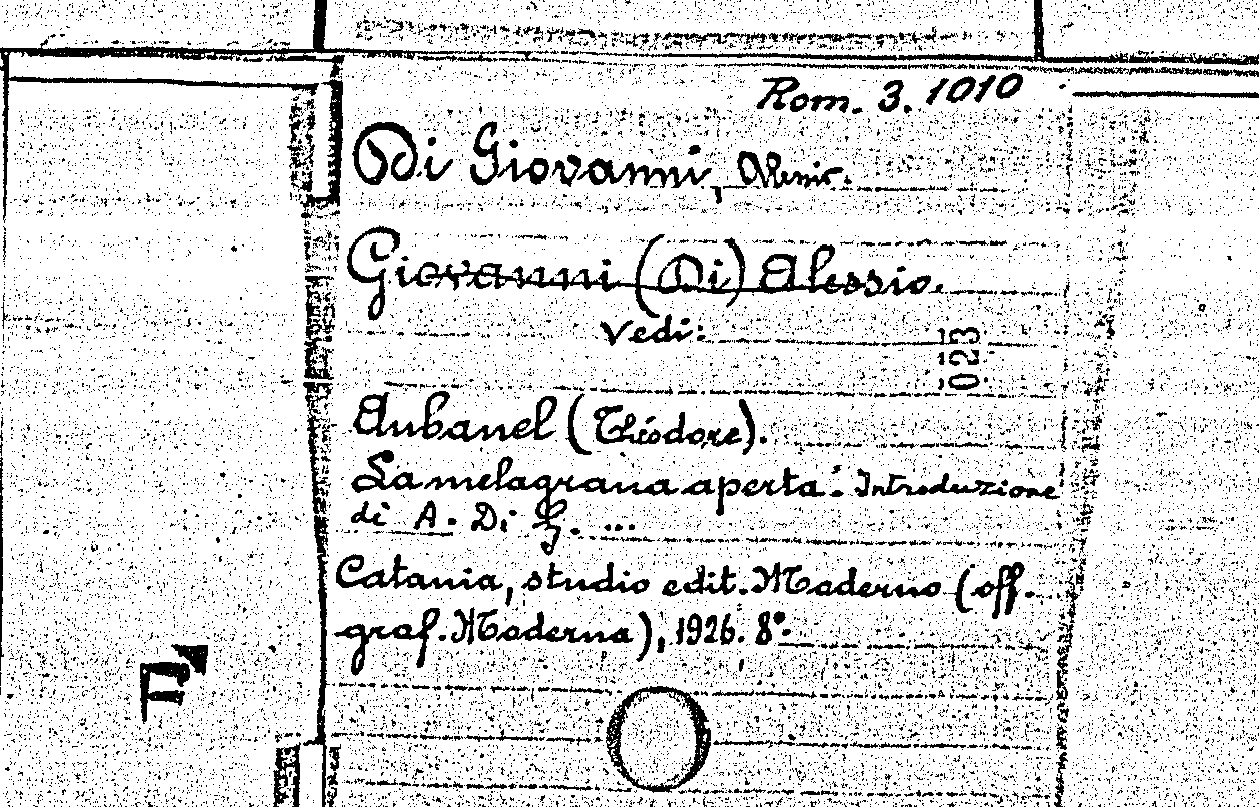 Rom. 3. 1010
Di Giovanni,
Giovanni (Di) Alessio.
Vedi:
023
Aubanel (Théodore).
La melagrana aperta. Introduzione
di A. Di G. ...
Catania, studio edit. Moderno (off.
graf. Moderna), 1926. 8°.
F